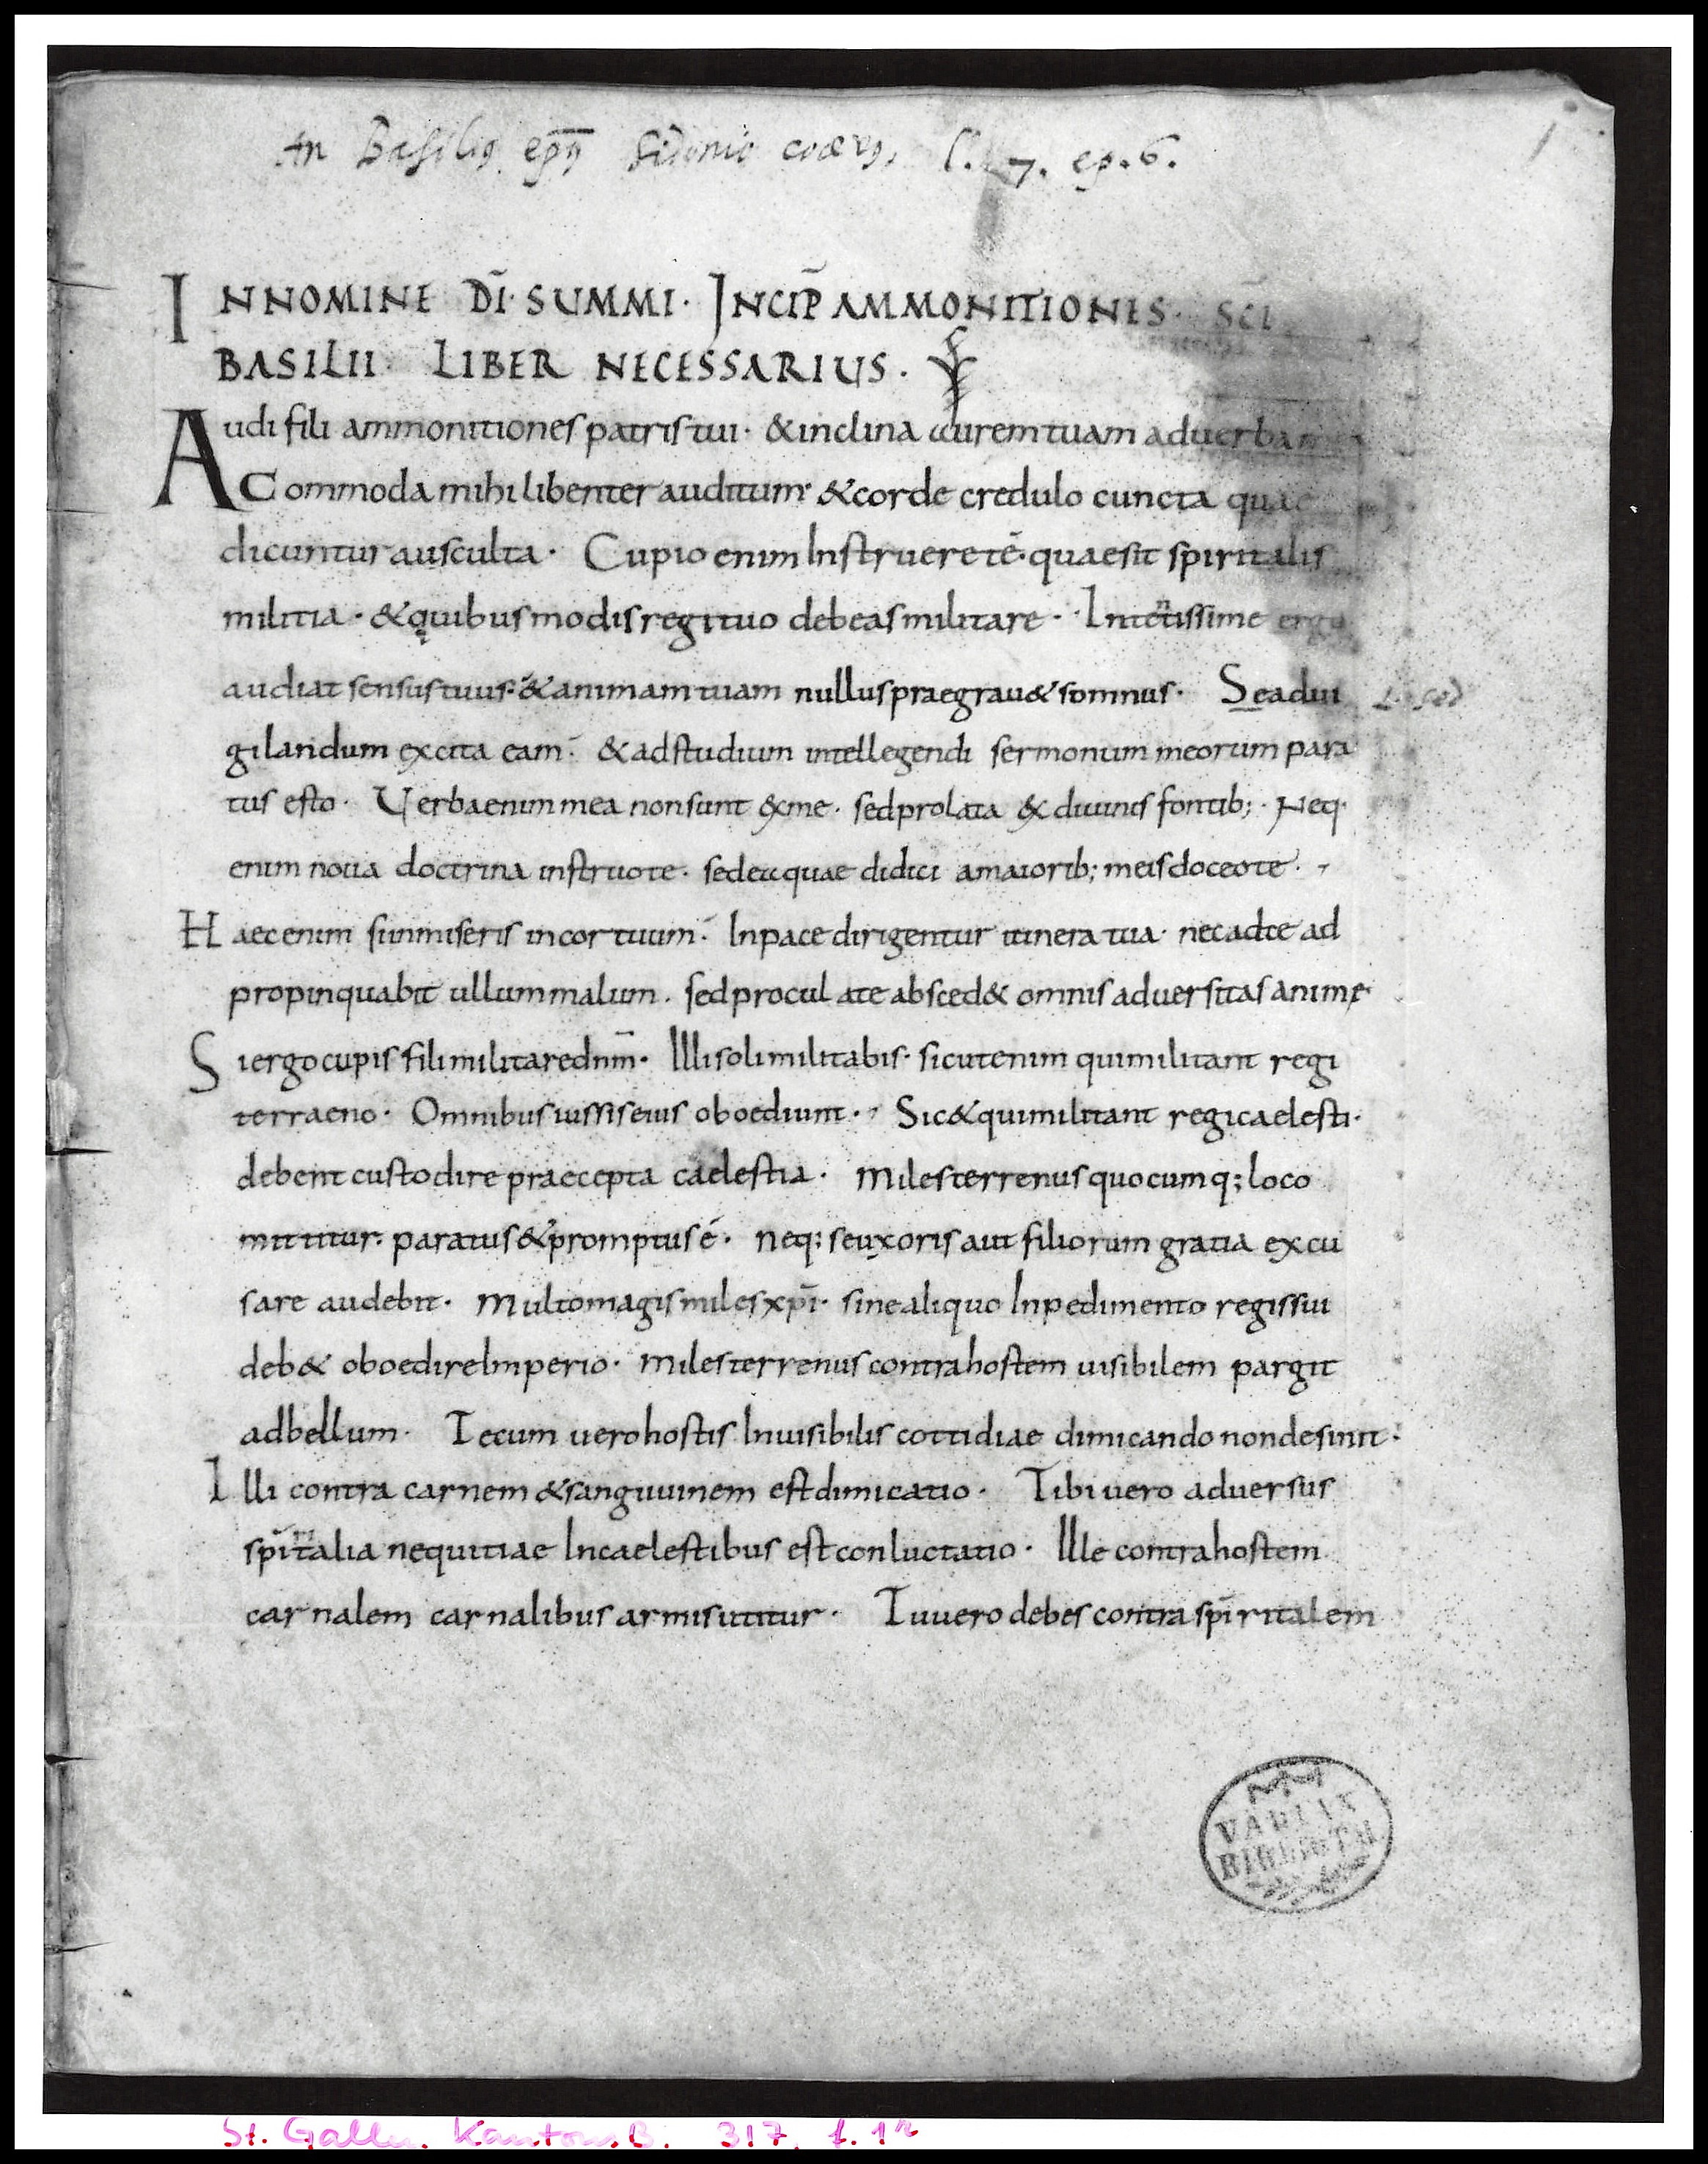 An Basiliꝰ epꝰ Sidonio coævꝰ, l. 7. ep. 6.
1
INNOMINE DI̅· SUMMI· INCIP̅ AMMONITIONES· SC̅I
BASILII· LIBER NECESSARIUS·
Audi fili ammonitiones patris tui· & inclina aurem tuam ad uerba
ACcommoda mihi libenter auditum· & corde credulo cuncta quae
dicuntur ausculta· Cupio enim Instruere te· quae sit spiritalis
militia· & quibus modis regi tuo debeas militare· Intentissime ergo
audiat sensus tuus· & animam tuam nullus praegrau& somnus· Se adui
gilandum excita eam· & ad studium intellegendi sermonum meorum para
tus esto· Uerba enim mea non sunt exme· sed prolata ex diuinis fontib;· Neq·
enim noua doctrina instruo te· sed ea quae didici amaiorib; meis doceo te·
Haec enim si inmiseris in cor tuum· In pace dirigentur itinera tua· nec ad te ad
propinquabit ullum malum· sed procul a te absced& omnis aduersitas animę·
Si ergo cupis fili militare dnm̅· Illi soli militabis· sicut enim qui militant regi
terraeno· Omnibus iussis eius oboediunt· Sic & qui militant regi caelesti·
debent custodire praecepta caelestia· Miles terrenus quo cumq; loco
mittitur· paratus & promptus é· Neq; se uxoris aut filiorum gratia excu
sare audebit· Multo magis miles xp̅i· sine aliquo Inpedimento regis sui
deb& oboedire Imperio· Miles terrenus contra hostem uisibilem pargit
ad bellum· Tecum uero hostis Inuisibilis cottidiae dimicando non desinit·
Illi contra carnem & sanguuinem est dimicatio· Tibi uero aduersus
sp̅iritalia nequitiae In caelestibus est conluctatio· Ille contra hostem
carnalem carnalibus armis utitur· Tu uero debes contra sp̅iritalem
VADIAN
BIBLIOTH.
St. Gallen, Kantons.B. 317, f. 1r